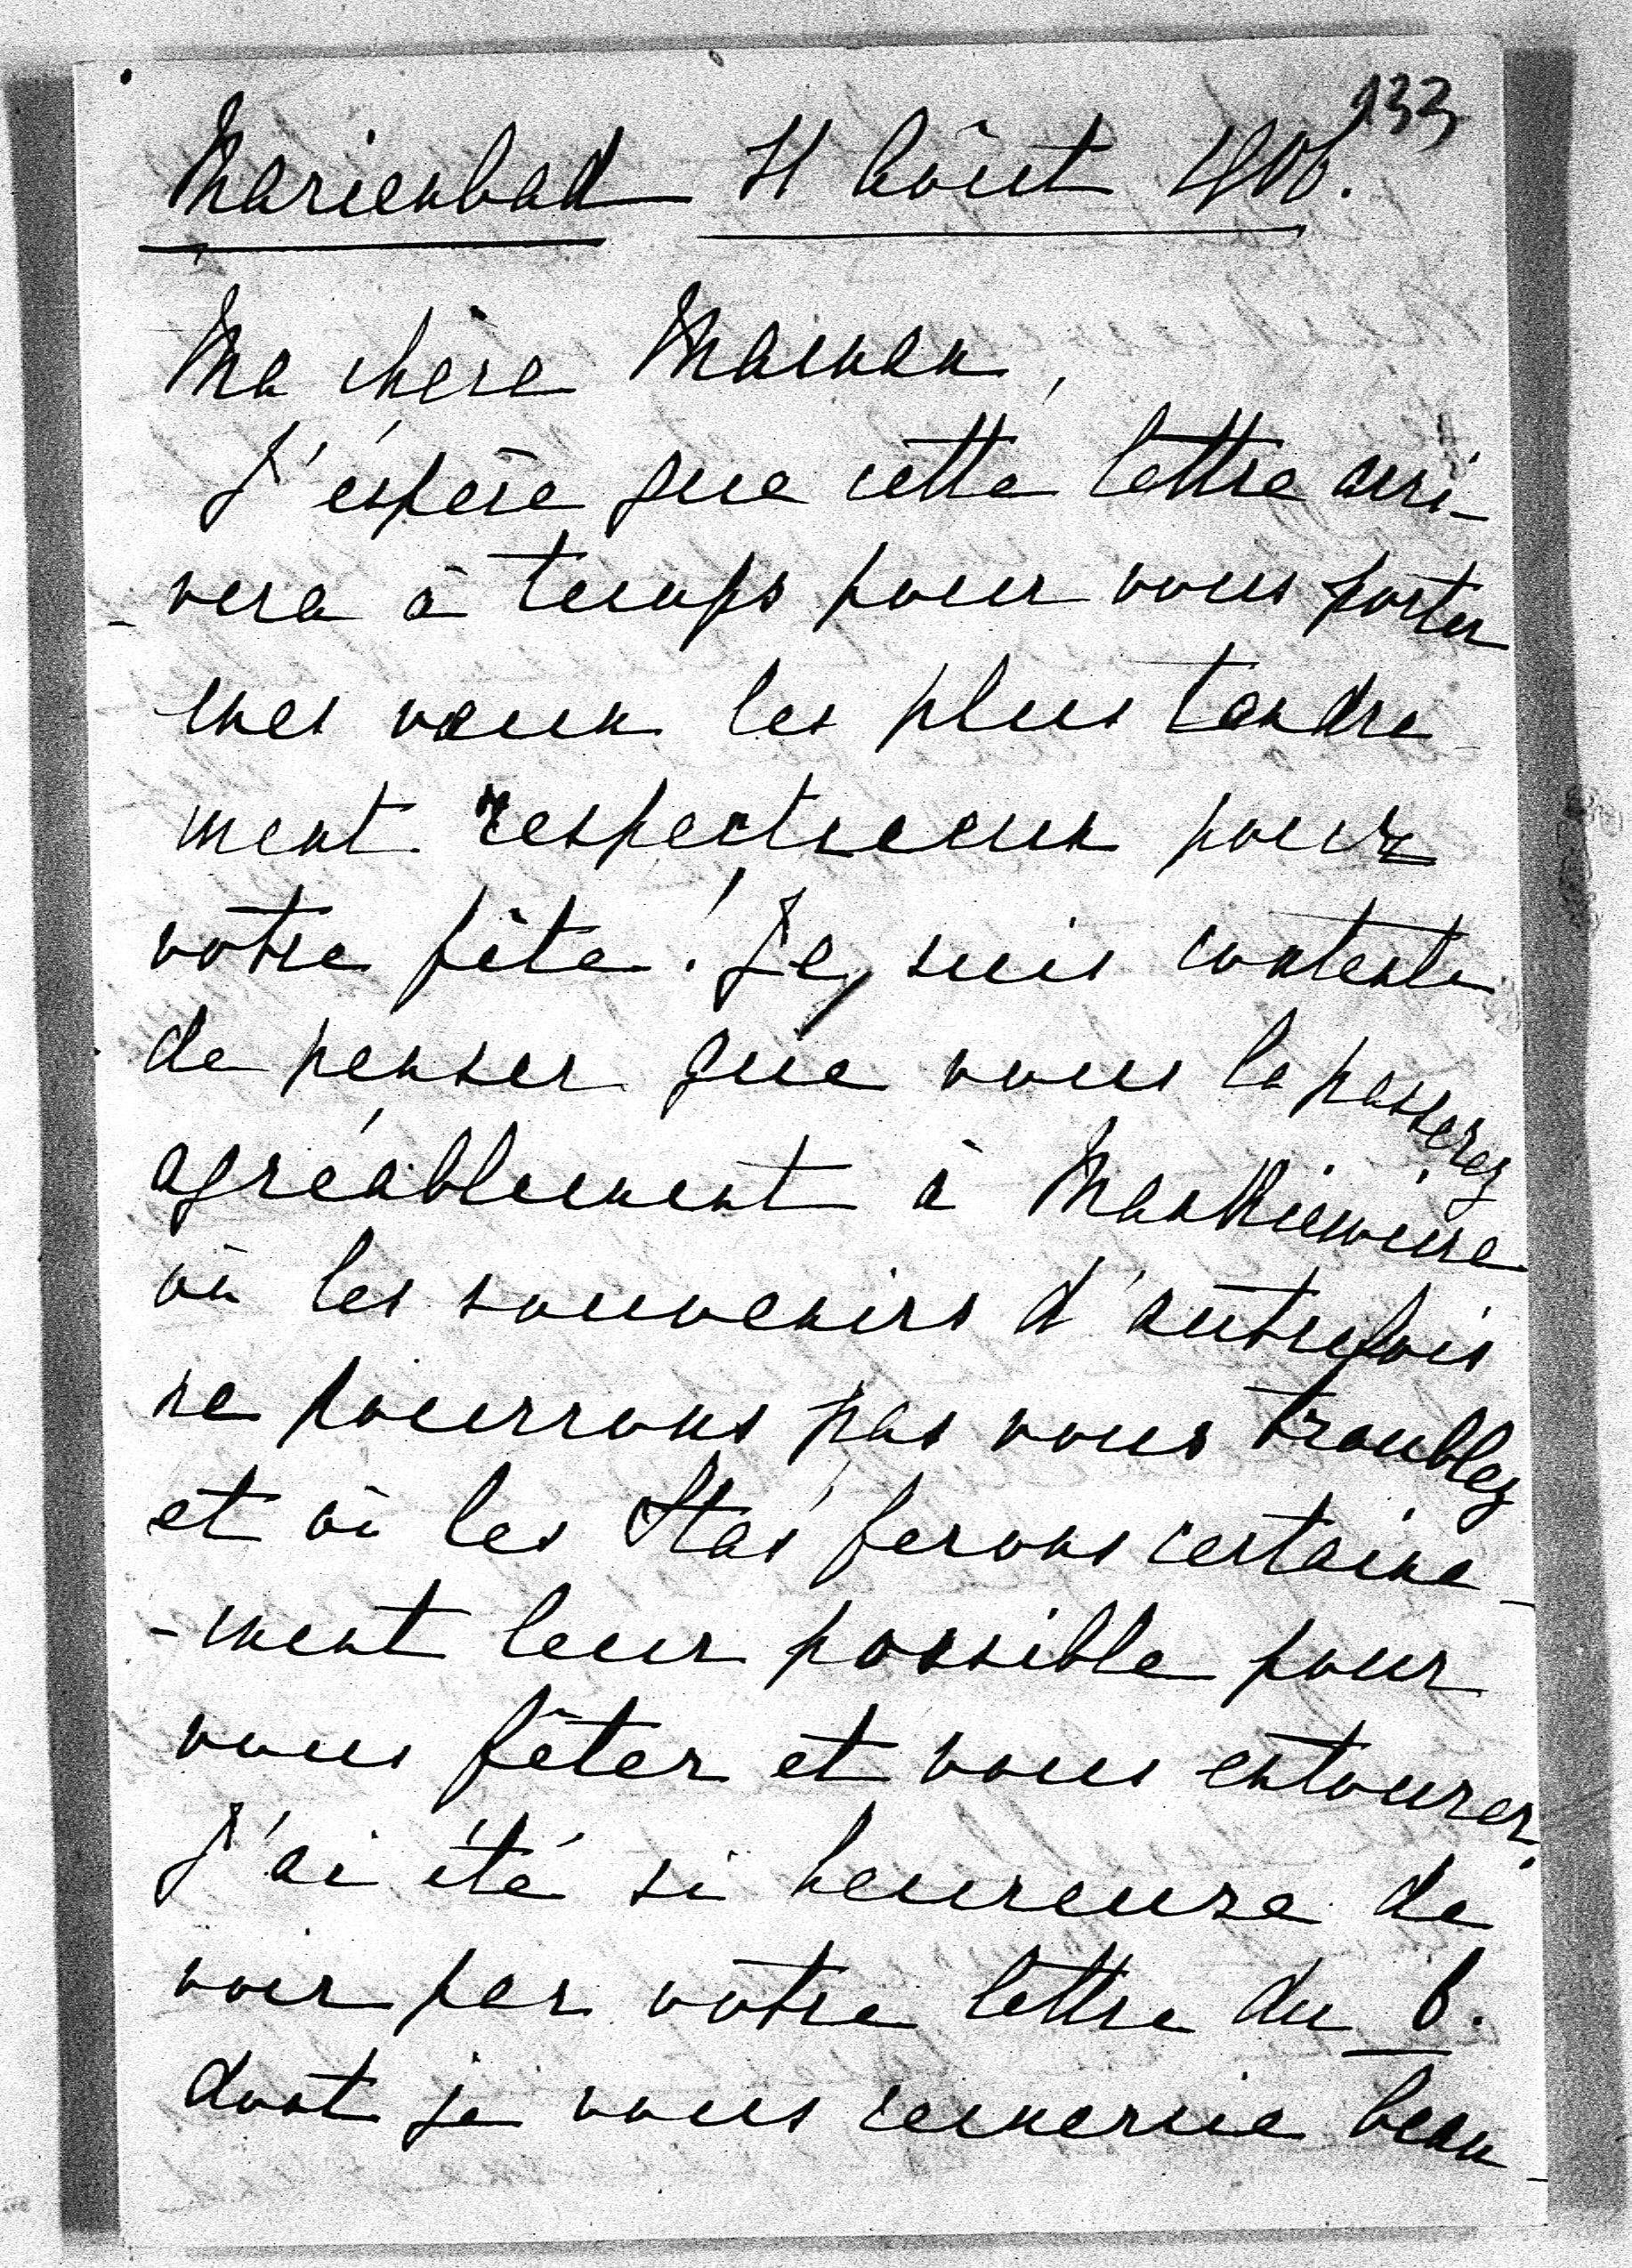 133
Marienbad 11 Août 1906.
Ma chère Maman,
J'éspère que cette lettre arri-
-vera à temps pour vous porter
mes vœux les plus tendre
ment respectueux pour
votre fête! Je suis contente
de penser que vous la passerez
agréablement à
où les souvenirs d'autrefois
ne pourrons pas vous troublez
et où les Stas' ferons certaine-
-ment leur possible pour
vous fêter et vous entourer.
J'ai été si heureuse de
voir par votre lettre du 6.
dont je vous remercie beau-